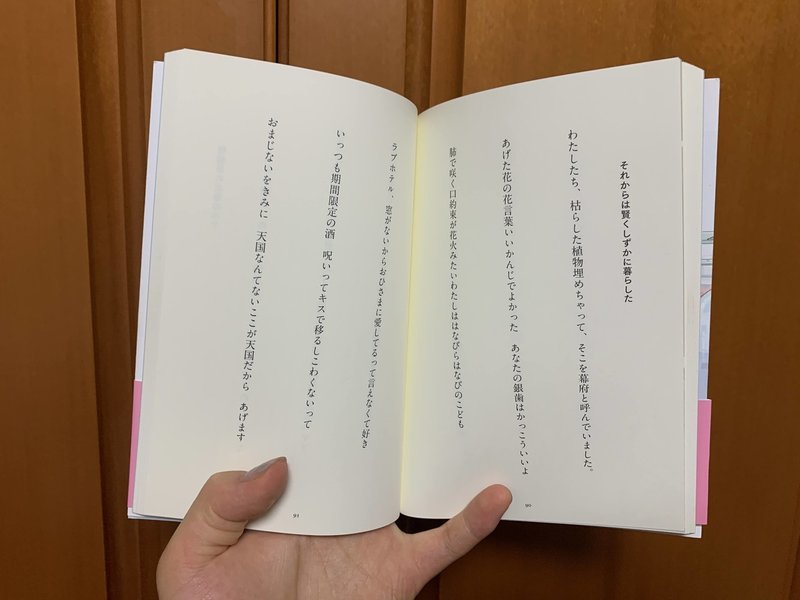 それからは賢くしずかに暮らした
わたしたち、枯らした植物埋めちゃって、そこを幕府と呼んでいました。
あげた花の花言葉いいかんじでよかった　あなたの銀歯はかっこういいよ
肺で咲く口約束が花火みたいわたしははなびらはなびのこども
90
ラブホテル、窓がないからおひさまに愛してるって言えなくて好き
いっつも期間限定の酒　呪いってキスで移るしこわくないって
おまじないをきみに　天国なんてないここが天国だから　あげます
91